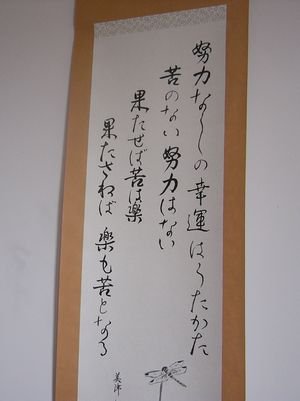 努力なしの幸運はうたかた
苦のない努力はない
果たせば苦は楽
果たさねば 楽も苦となる